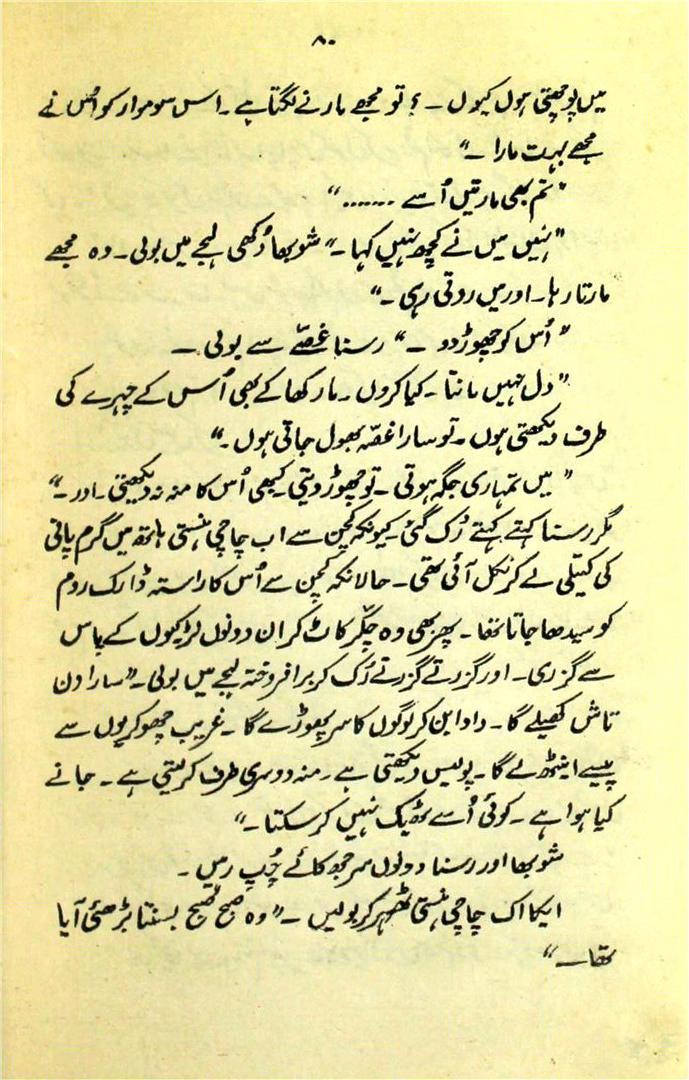 ۸۰
میں پوچھتی ہوں کیوں ۔ ؟ تو مجھے مارنے لگتا ہے ۔ اس سوموار کو اُس نے
مجھے بہت مارا ۔"
"تم بھی مارتیں اُسے ......"
"نہیں میں نے کچھ نہیں کہا ۔" شوبھا دُکھی لہجے میں بولی ۔ وہ مجھے
مارتا رہا ۔ اور میں روتی رہی ۔"
"اُس کو چھوڑ دو ۔" رسنا غصّے سے بولی ۔
"دل نہیں مانتا ۔ کیا کروں ۔ مار کھا کے بھی اُس کے چہرے کی
طرف دیکھتی ہوں ۔ تو سارا غصّہ بھول جاتی ہوں ۔"
"میں تمہاری جگہ ہوتی ۔ تو چھوڑ دیتی ۔ کبھی اُس کا منہ نہ دیکھتی ۔ اور ۔"
مگر رسنا کہتے کہتے رُک گئی ۔ کیونکہ کچن سے اب چاچی ہنستی ہاتھ میں گرم پانی
کی کیتلی لے کر نکل آئی تھی ۔ حالانکہ کچن سے اُس کا راستہ ڈارک روم
کو سیدھا جاتا تھا ۔ پھر بھی وہ چکّر کاٹ کر ان دونوں لڑکیوں کے پاس
سے گزری ۔ اور گزرتے گزرتے رُک کر برافروختہ لہجے میں بولی ۔ "سارا دن
تاش کھیلے گا ۔ دادا بن کر لوگوں کا سر پھوڑے گا ۔ غریب چھوکریوں سے
پیسے اینٹھ لے گا ۔ پولیس دیکھتی ہے ۔ منہ دوسری طرف کر لیتی ہے ۔ جانے
کیا ہوا ہے ۔ کوئی اُسے ٹھیک نہیں کر سکتا ۔"
شوبھا اور رسنا دونوں سر جھکائے چُپ رہیں ۔
ایکا اک چاچی ہنستی ٹھہر کر بولیں ۔ "وہ صبح صبح بسنتا بڑھئی آیا
تھا ۔"